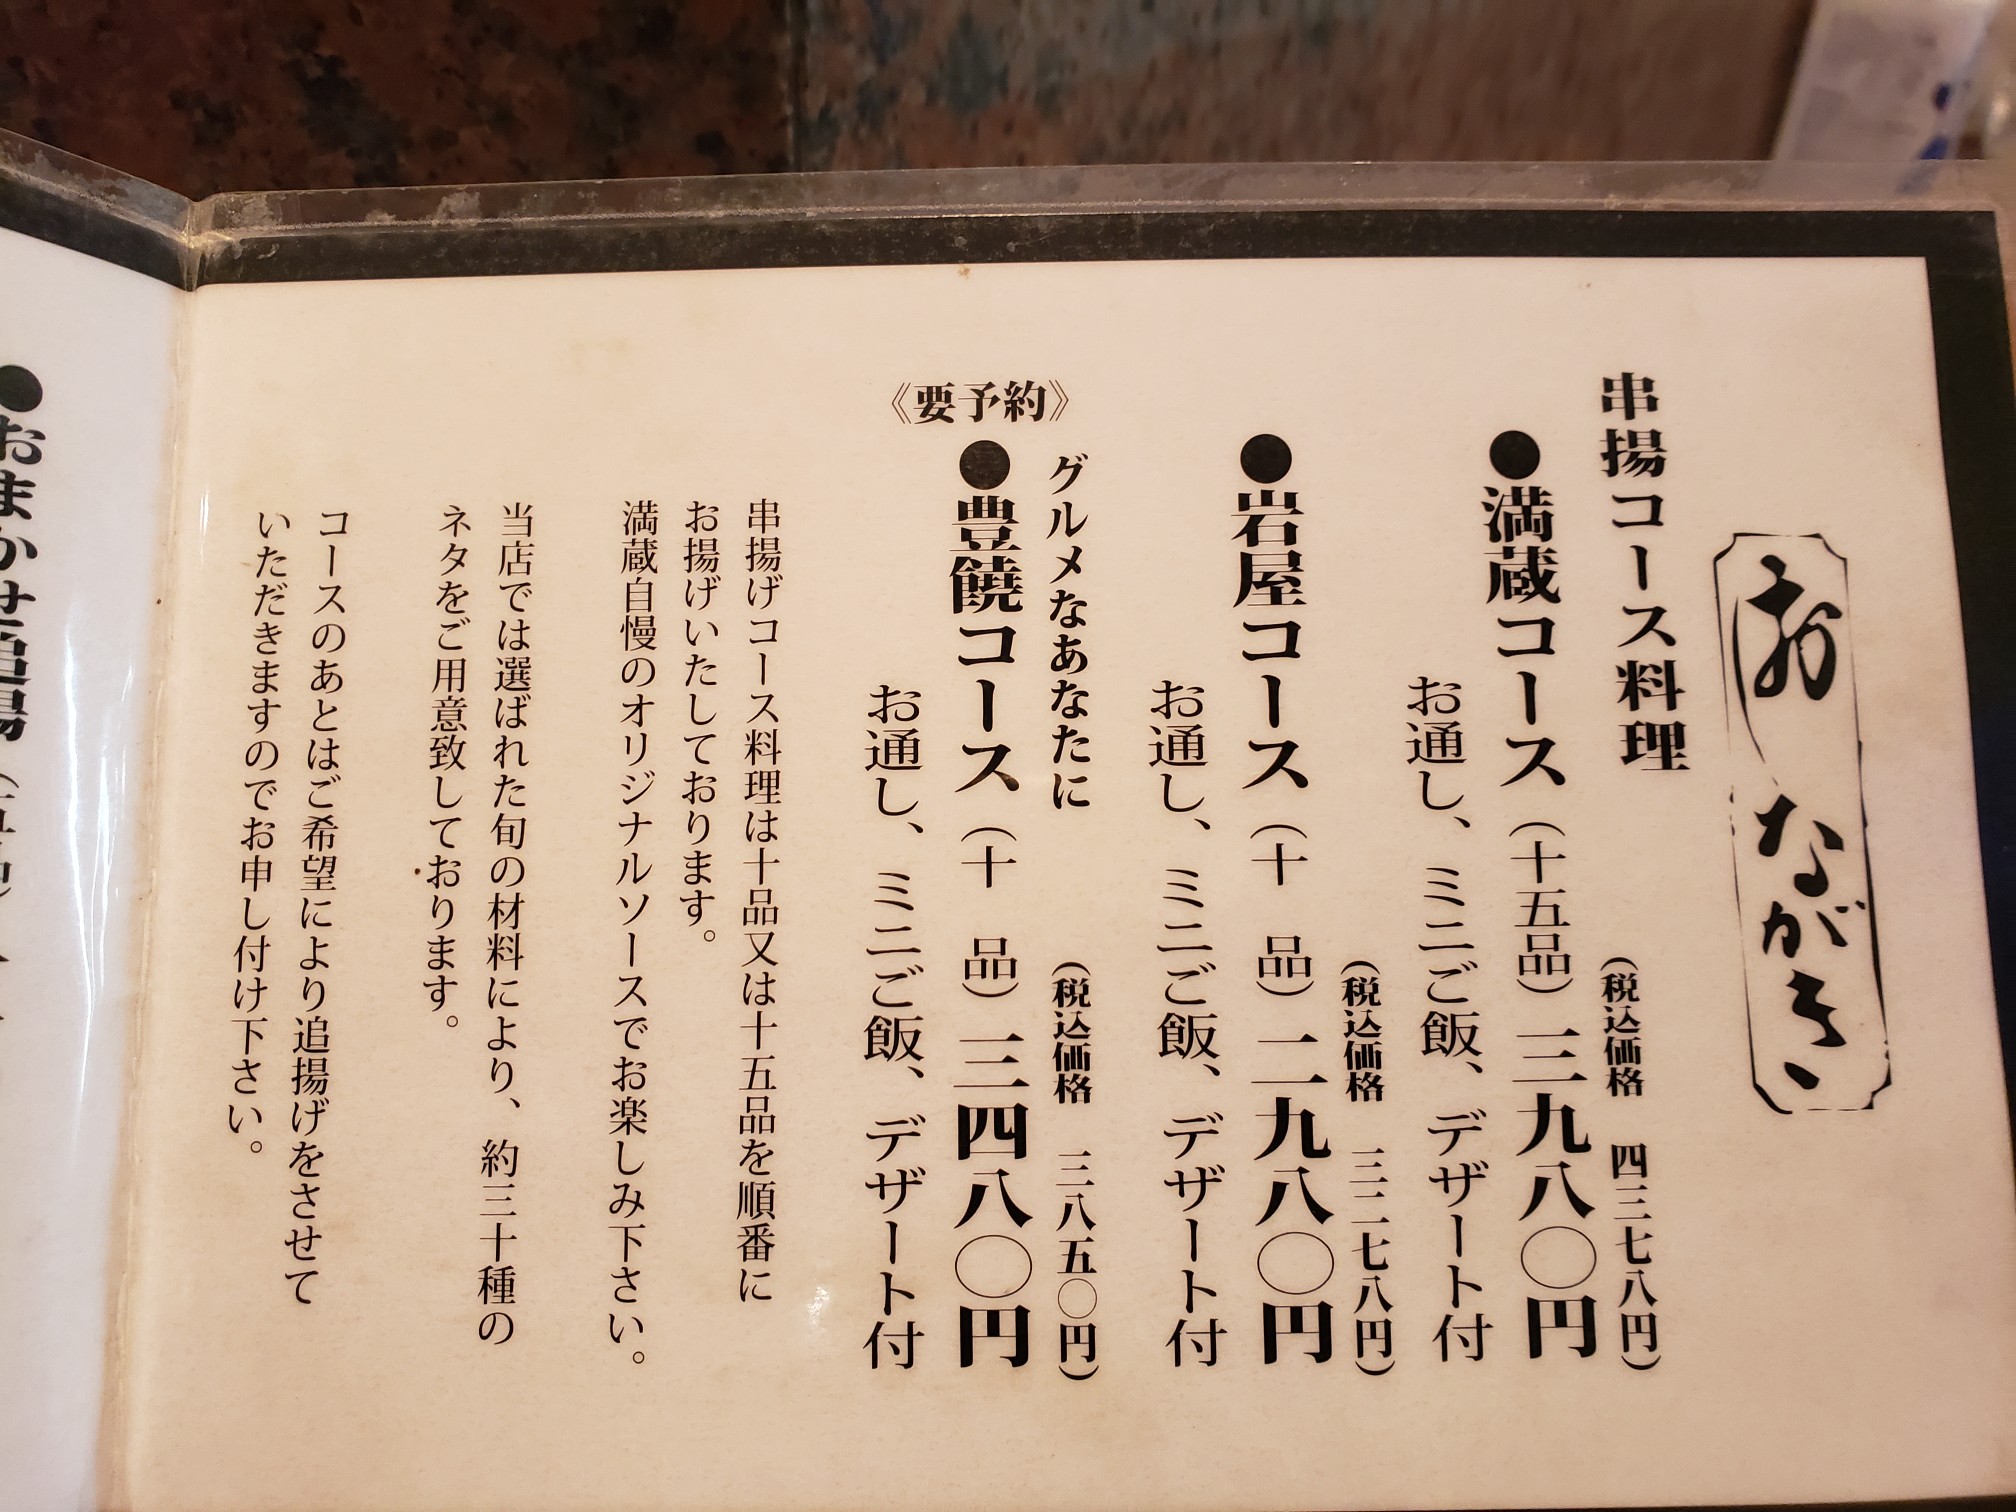 おながき
串揚コース料理
(税込価格 四三七八円)
●満蔵コース(十五品)三九八〇円
お通し、ミニご飯、デザート付
(税込価格 三二七八円)
●岩屋コース(十 品)二九八〇円
お通し、ミニご飯、デザート付
グルメなあなたに
(税込価格 三八五〇円)
《要予約》
●豊饒コース(十 品)三四八〇円
お通し、ミニご飯、デザート付
串揚げコース料理は十品又は十五品を順番に
お揚げいたしております。
満蔵自慢のオリジナルソースでお楽しみ下さい。
当店では選ばれた旬の材料により、約三十種の
ネタをご用意致しております。
コースのあとはご希望により追揚げをさせて
いただきますのでお申し付け下さい。
●おまかせ追揚